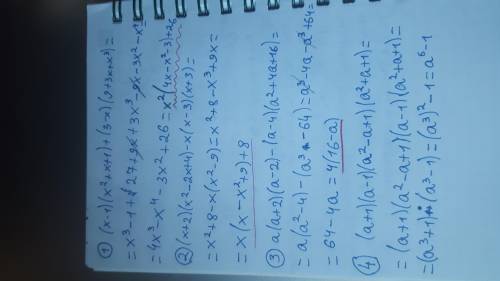 ① (x-1)(x²+x+1)+(3-x)(9+3x+x²)=
= x³-1+27+9x+3x³-9x-3x²-x⁴
= 4x³-x⁴-3x²+26=x²(4x-x²-3)+26
② (x+2)(x²-2x+4)-x(x-3)(x+3)=
= x²+8-x(x²-9)=x²+8-x³+9x=
= x(x-x²+9)+8
③ a(a+2)(a-2)-(a-4)(a²+4a+16)=
= a(a²-4)-(a³-64)=a³-4a-a³+64=
= 64-4a=4(16-a)
④ (a+1)(a-1)(a²-a+1)(a²+a+1)=
= (a+1)(a²-a+1)(a-1)(a²+a+1)=
= (a³+1)·(a³-1)=(a³)²-1=a⁶-1